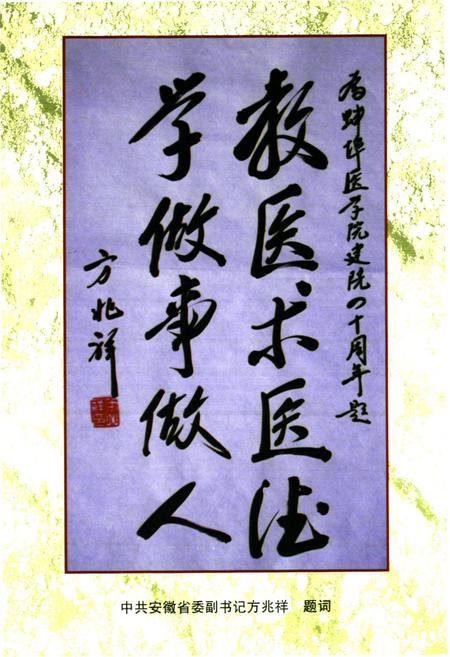 为蚌埠医学院建院四十周年题
教医术医德
学做事做人
方兆祥
中共安徽省委副书记方兆祥 题词